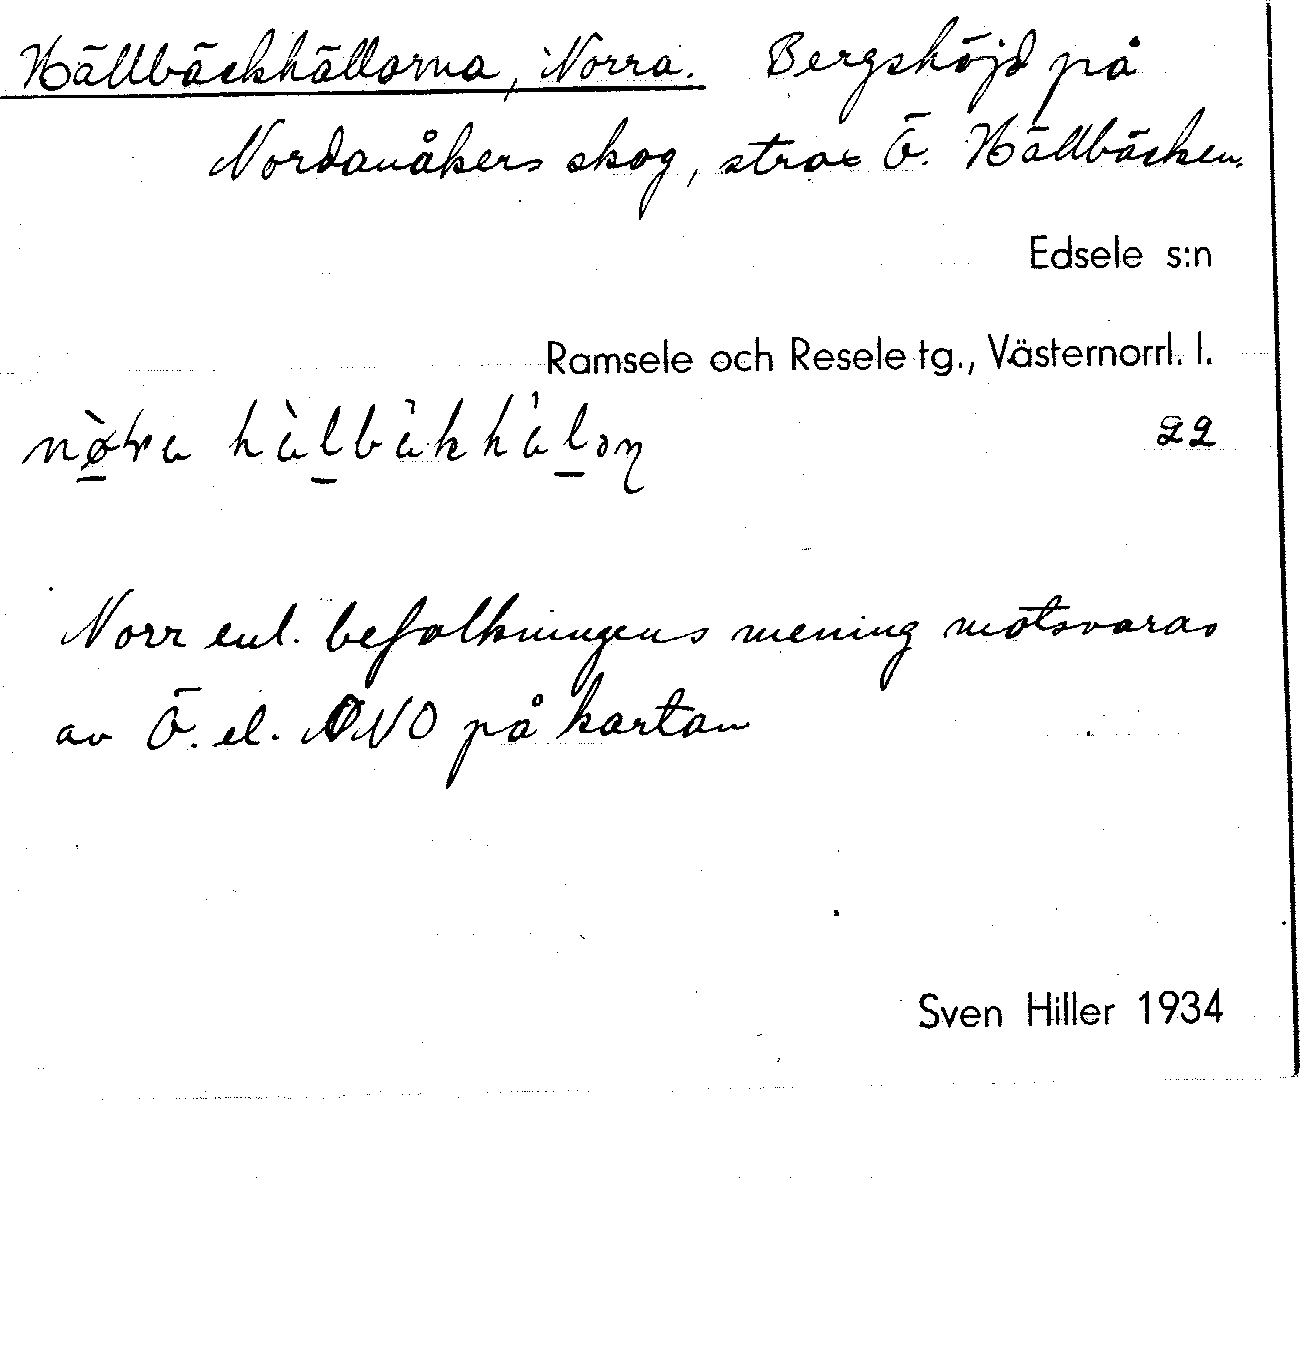 Hällbäckhällarna, Norra. Bergshöjd på
Nordanåkers skog, strax Ö. Hällbäcken.
Edsele s:n
Ramsele och Resele tg., Västernorrl. l.
22
Norr enl. befolkningens mening motsvaras
av Ö. el. ONO på kartan
Sven Hiller 1934